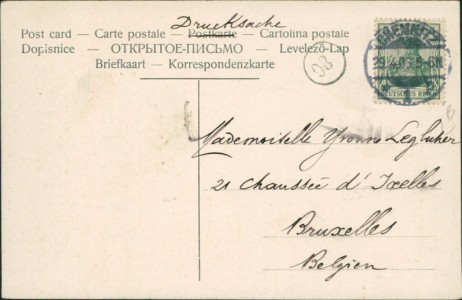 Drucksache
Post card — Carte postale — Postkarte — Cartolina postale
Dopisnice — ОТКРЫТОЕ-ПИСЬМО — Levelező-Lap
Briefkaart — Korrespondenzkarte
CHEMNITZ
DEUTSCHES REICH
Mademoiselle Yvonne
21 Chaussée d'Ixelles
Bruxelles
Belgien